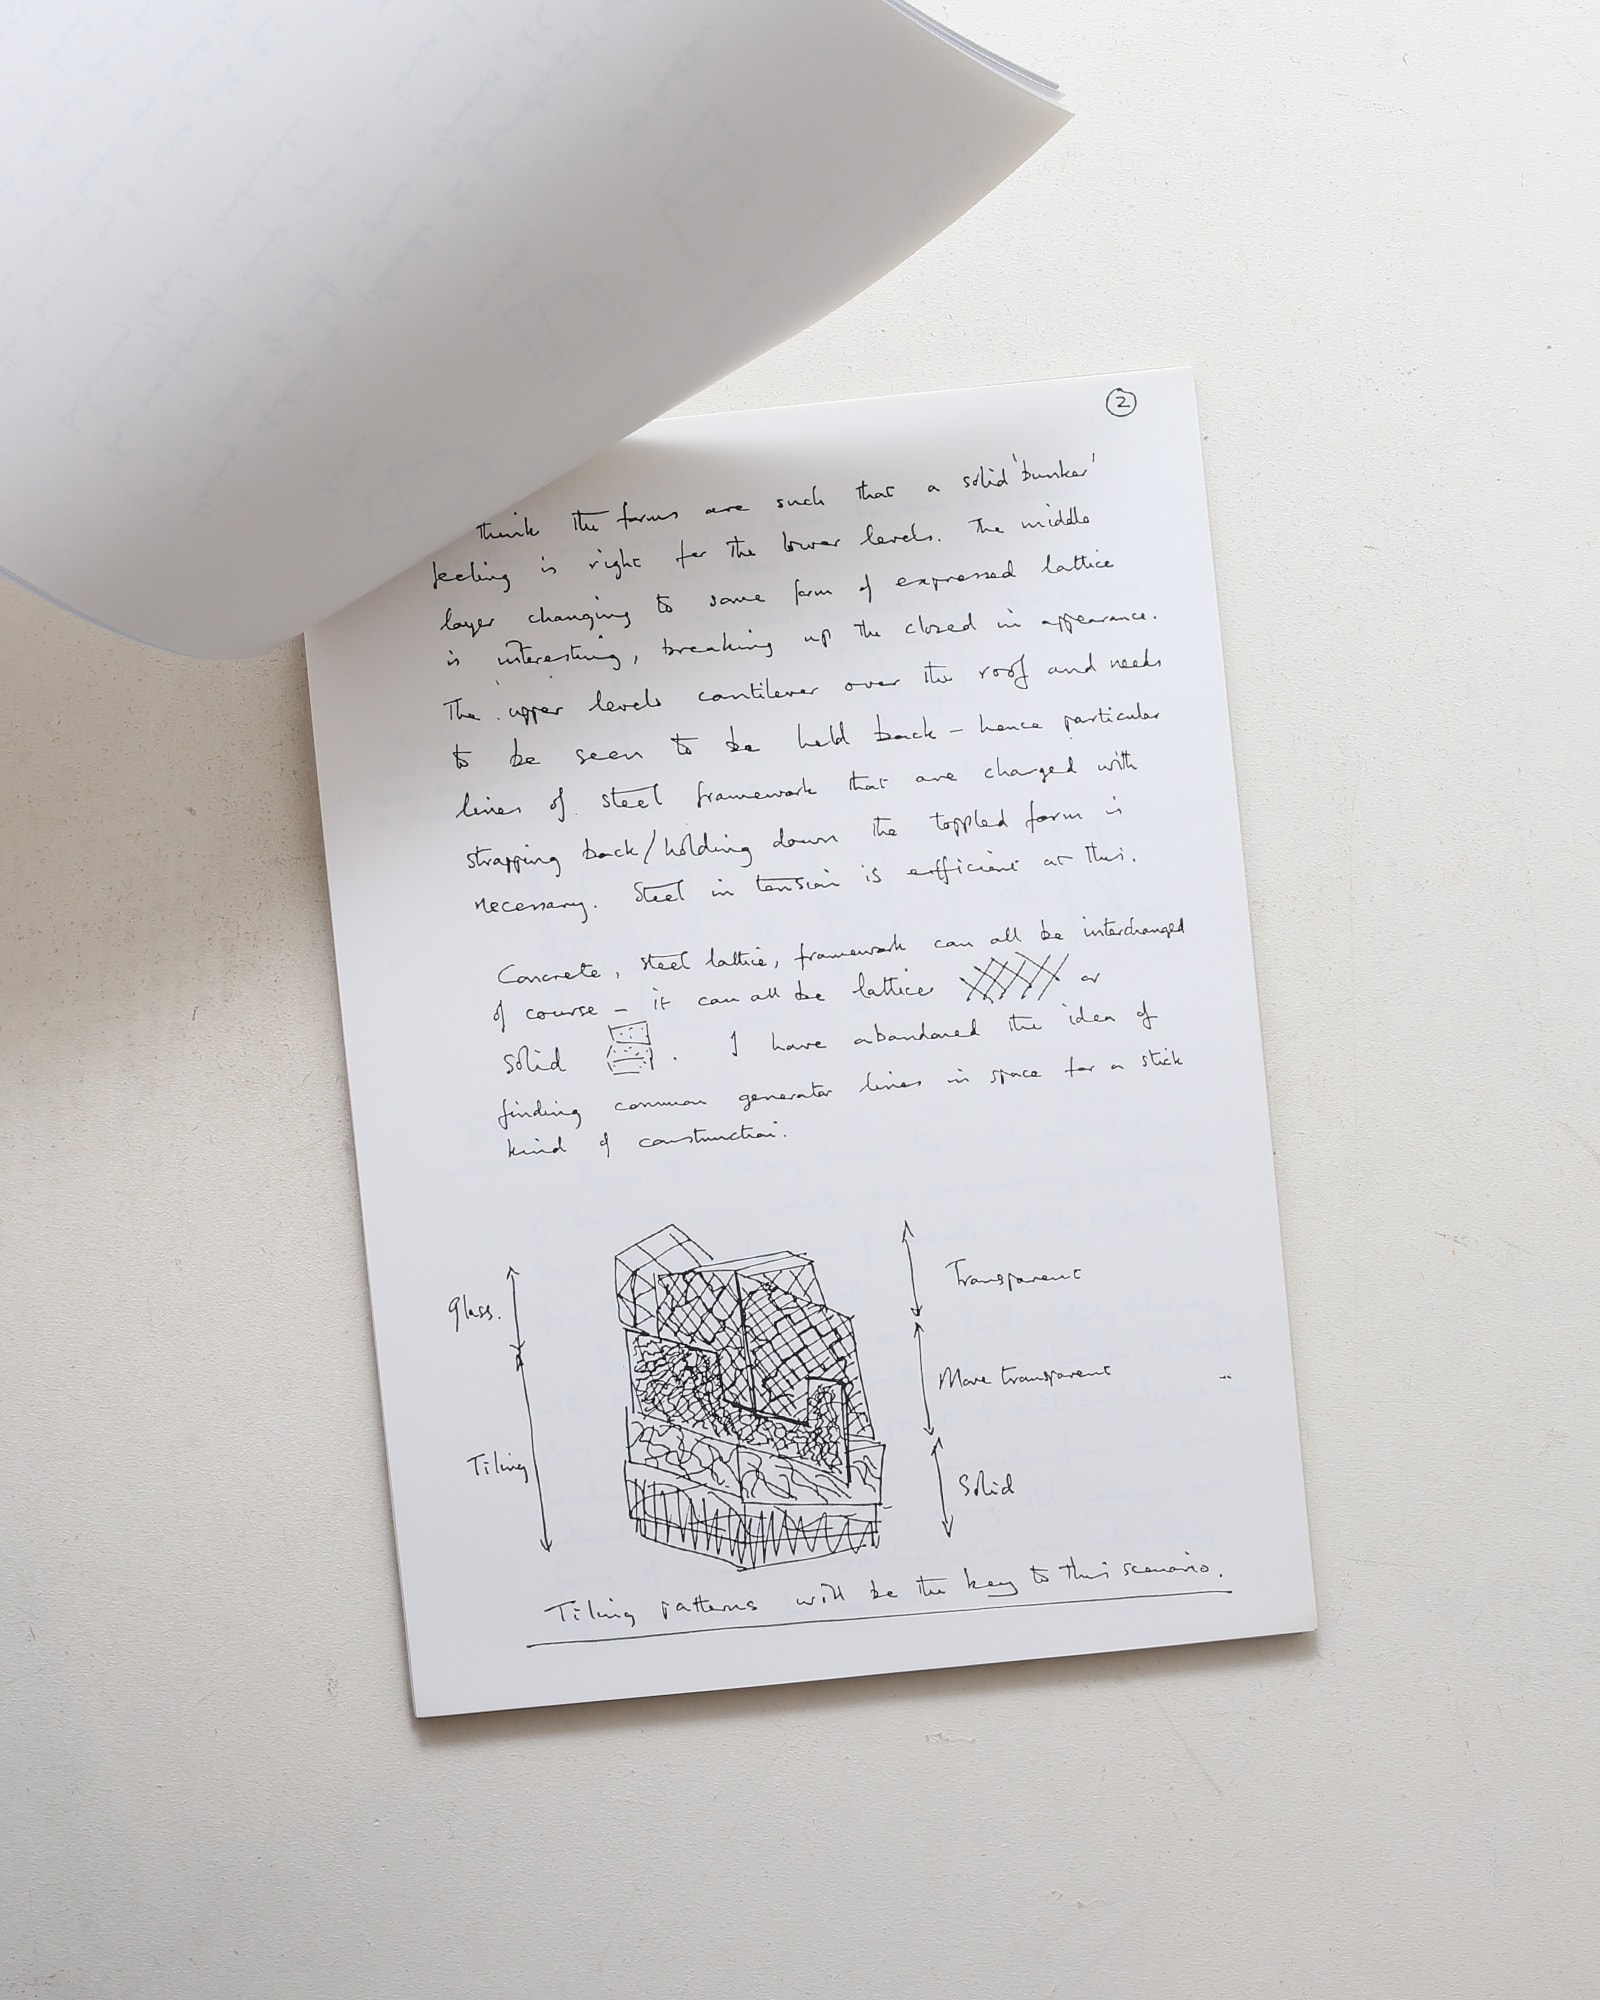 ②
think the forms are such that a solid 'bunker'
feeling is right for the lower levels. The middle
layer changing to some form of expressed lattice
is interesting, breaking up the closed in appearance.
The upper levels cantilever over the roof and needs
to be seen to be held back - hence particular
lines of steel framework that are charged with
strapping back/holding down the toppled form is
necessary. Steel in tension is efficient at this.
Concrete, steel lattice, framework can all be interchanged
of course - it can all be lattice or
solid . I have abandoned the idea of
finding common generator lines in space for a stick
kind of construction.
Glass.
Tiling
Transparent
More transparent
Solid
Tiling patterns will be the key to this scenario.